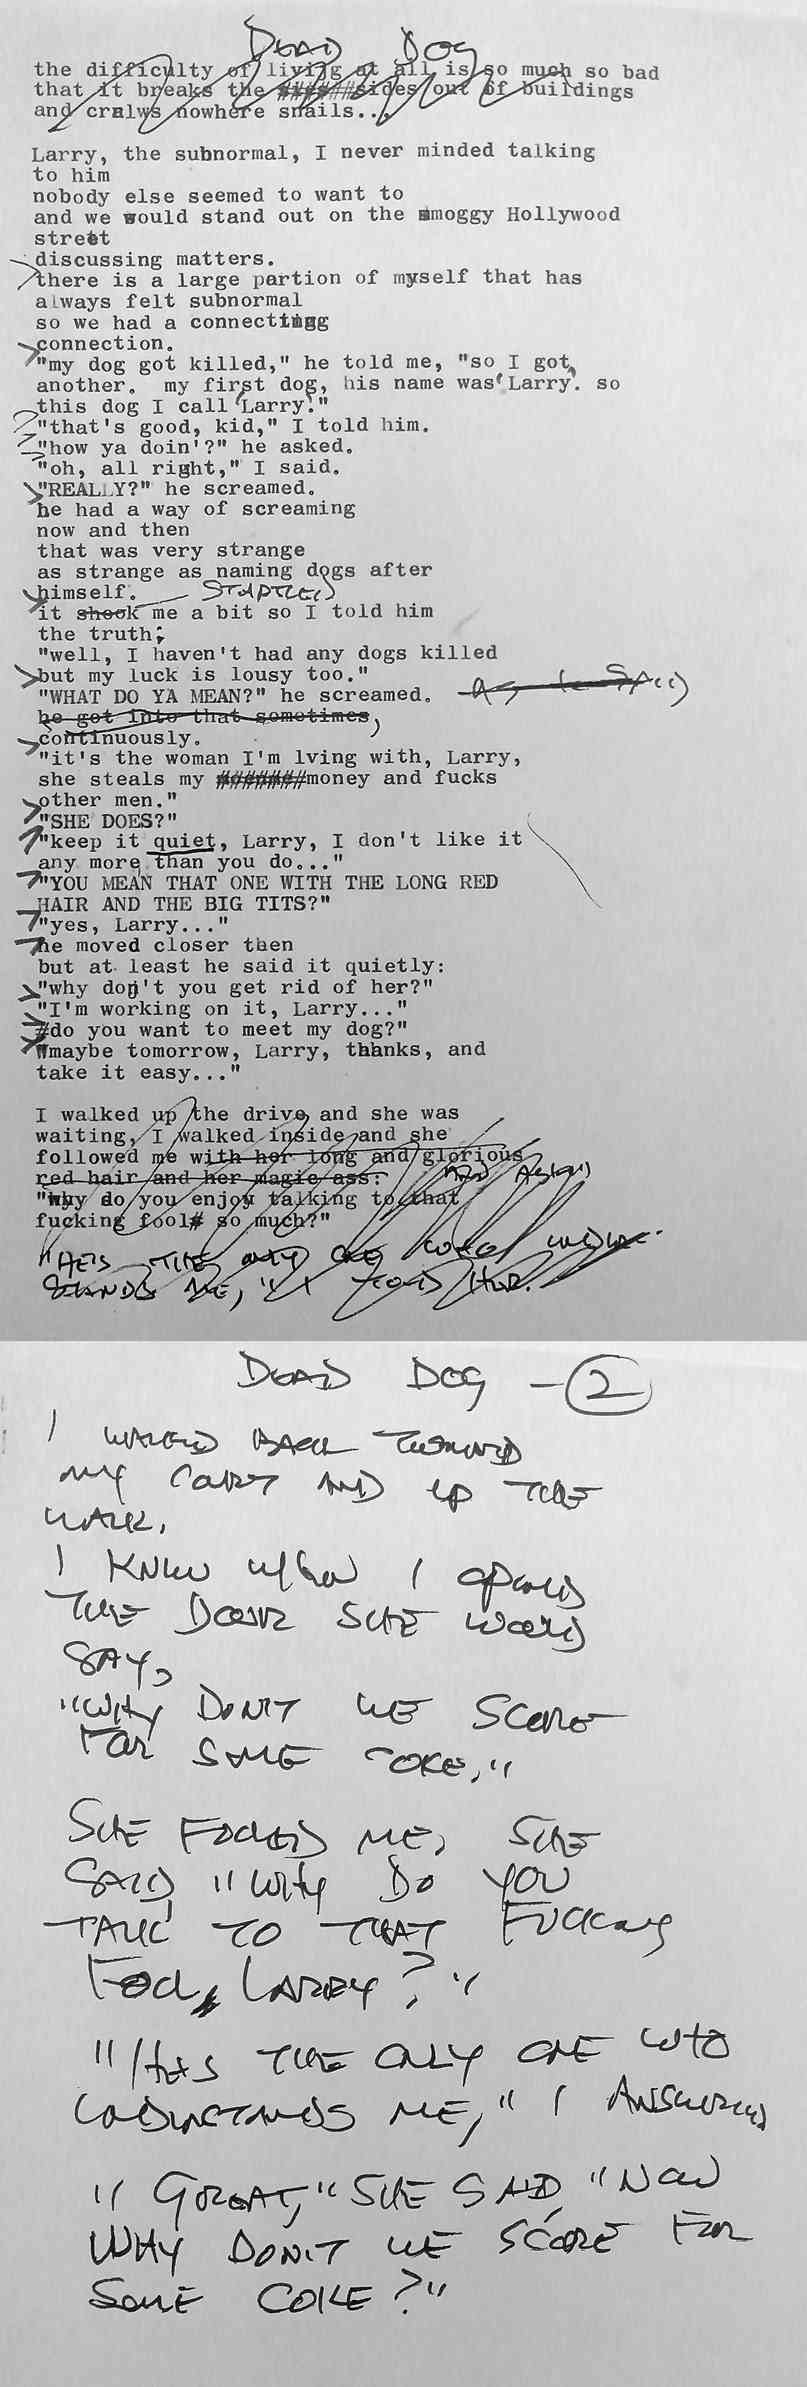 DEAD DOG
the difficulty of livijg at all is so much so bad
that it breaks the ######sides out of buildings
and cralws nowhere snails...
Larry, the subnormal, I never minded talking
to him
nobody else seemed to want to
and we would stand out on the smoggy Hollywood
street
discussing matters.
there is a large portion of myself that has
always felt subnormal
so we had a connecting
connection.
"my dog got killed," he told me, "so I got
another. my first dog, his name was 'Larry.' so
this dog I call 'Larry'."
"that's good, kid," I told him.
"how ya doin'?" he asked.
"oh, all right," I said.
"REALLY?" he screamed.
he had a way of screaming
now and then
that was very strange
as strange as naming dogs after
himself. STARTLED
it shook me a bit so I told him
the truth;
"well, I haven't had any dogs killed
but my luck is lousy too."
"WHAT DO YA MEAN?" he screamed.
he got into that sometimes,
continuously.
"it's the woman I'm lving with, Larry,
she steals my #######money and fucks
other men."
"SHE DOES?"
"keep it quiet, Larry, I don't like it
any more than you do..."
"YOU MEAN THAT ONE WITH THE LONG RED
HAIR AND THE BIG TITS?"
"yes, Larry..."
he moved closer then
but at least he said it quietly:
"why don't you get rid of her?"
"I'm working on it, Larry..."
#do you want to meet my dog?"
"maybe tomorrow, Larry, thanks, and
take it easy..."
I walked up the drive and she was
waiting, I walked inside and she
followed me with her long and glorious
red hair and her magic ass:
"why do you enjoy talking to that
fucking fool# so much?"
"HE'S THE ONLY ONE WHO UNDER-
STANDS ME," I TOLD HER.
DEAD DOG - 2
I WALKED BACK TOWARD
MY COURT AND UP THE
WALK.
I KNEW WHEN I OPENED
THE DOOR SHE WOULD
SAY,
"WHY DON'T WE SCORE
FOR SOME COKE,"
SHE FOOLED ME, SHE
SAID, "WHY DO YOU
TALK TO THAT FUCKING
FOOL, LARRY?"
"HE'S THE ONLY ONE WHO
UNDERSTANDS ME," I ANSWERED
"GREAT," SHE SAID, "NOW
WHY DON'T WE SCORE FOR
SOME COKE?"